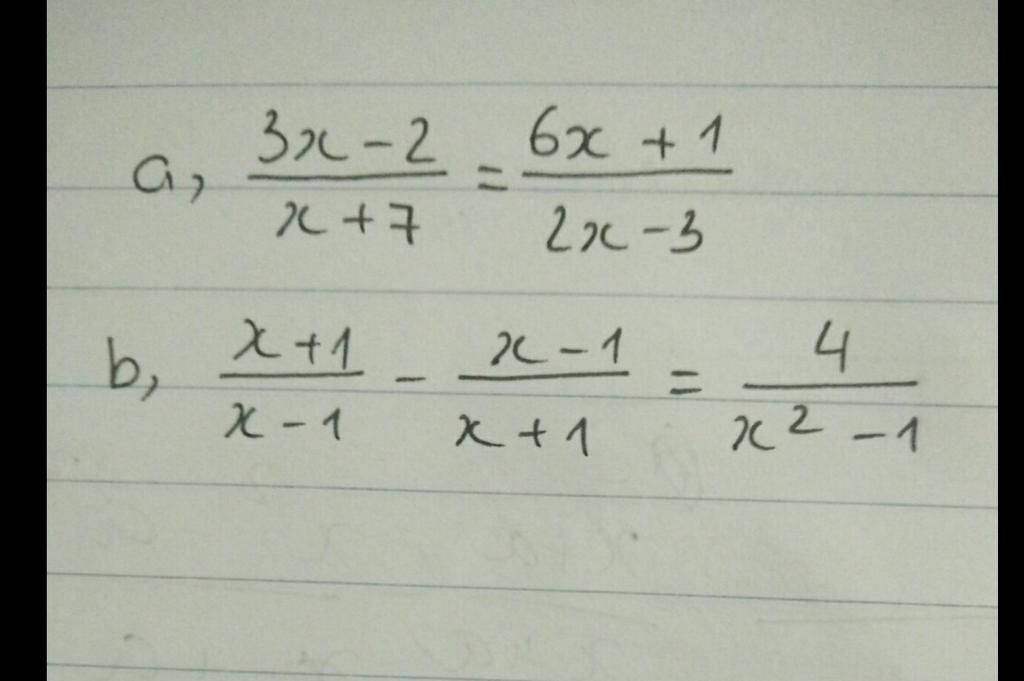 a, (3x - 2)/(x + 7) = (6x + 1)/(2x - 3)
b, (x + 1)/(x - 1) - (x - 1)/(x + 1) = 4/(x² - 1)